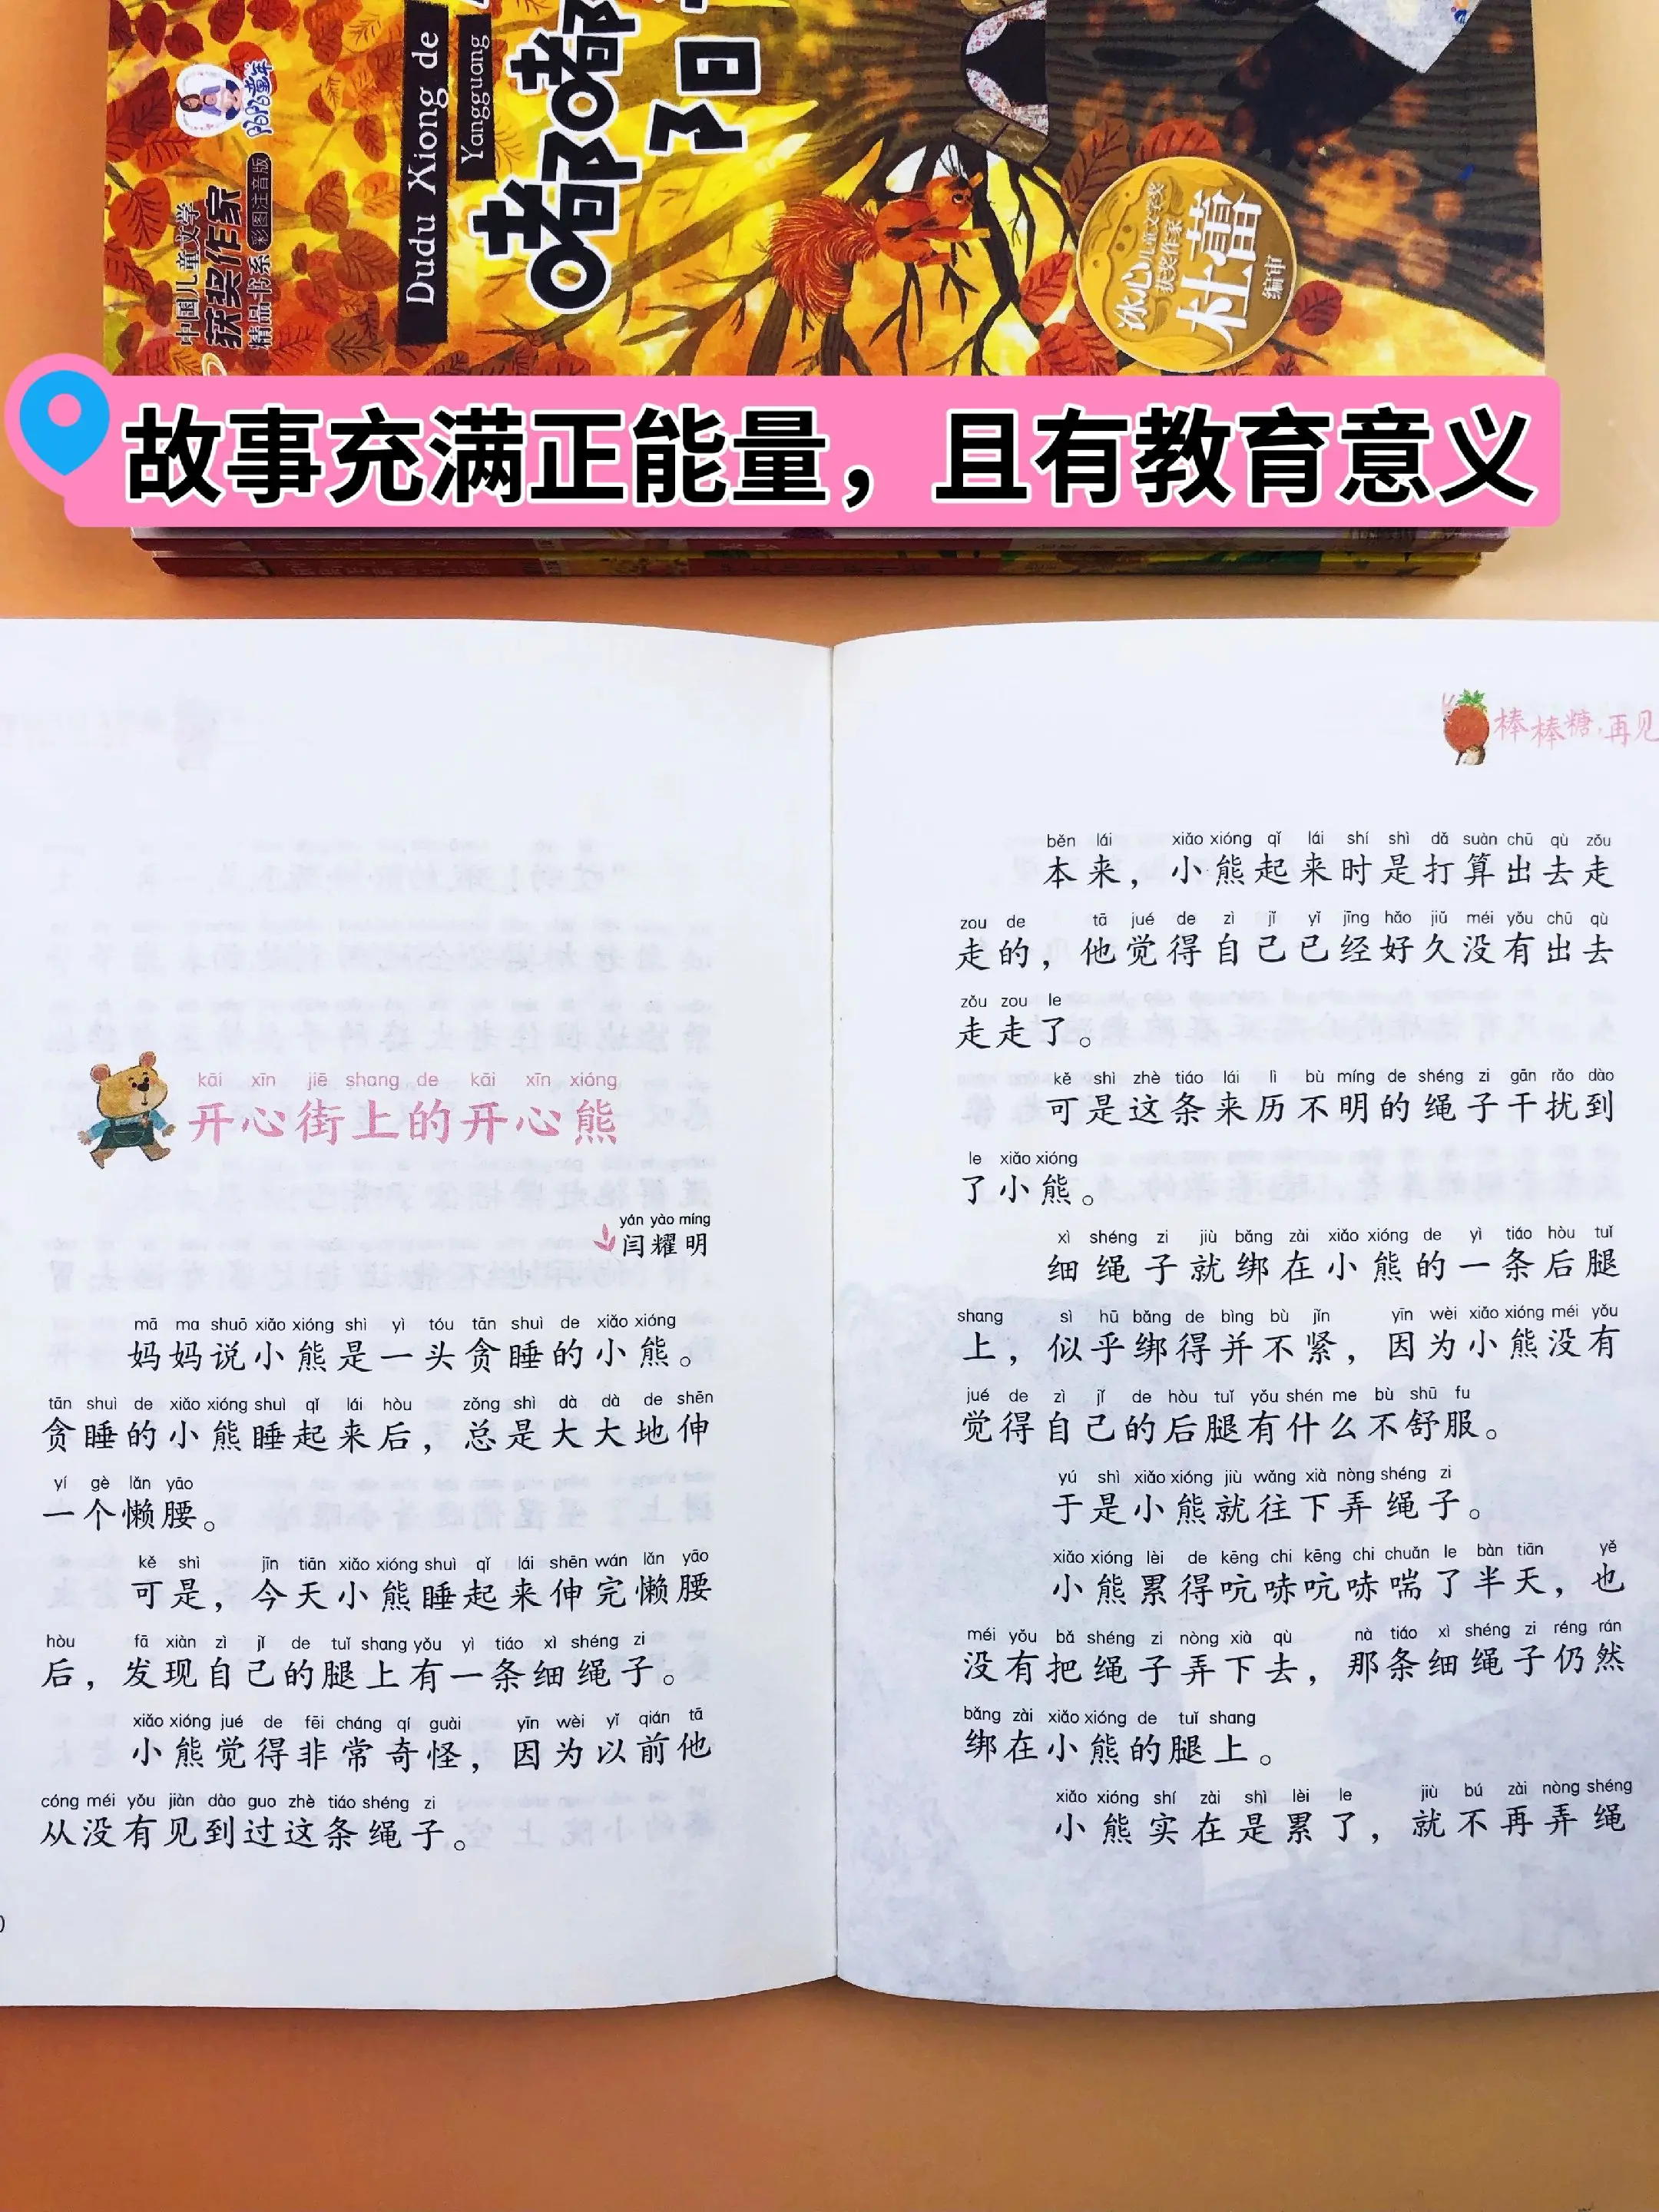 中国儿童文学
获奖作家
精品书系 彩图注音版
Dudu Xiong de
Yangguang
嘟嘟
阳
冰心儿童文学奖
获奖作家
杜蕾
编审
故事充满正能量，且有教育意义
kāi xīn jiē shang de kāi xīn xióng
开心街上的开心熊
yán yào míng
闫耀明
mā ma shuō xiǎo xióng shì yì tóu tān shuì de xiǎo xióng
妈妈说小熊是一头贪睡的小熊。
tān shuì de xiǎo xióng shuì qǐ lái hòu zǒng shì dà dà de shēn
贪睡的小熊睡起来后，总是大大地伸
yí gè lǎn yāo
一个懒腰。
kě shì jīn tiān xiǎo xióng shuì qǐ lái shēn wán lǎn yāo
可是，今天小熊睡起来伸完懒腰
hòu fā xiàn zì jǐ de tuǐ shang yǒu yì tiáo xì shéng zi
后，发现自己的腿上有一条细绳子。
xiǎo xióng jué de fēi cháng qí guài yīn wèi yǐ qián tā
小熊觉得非常奇怪，因为以前他
cóng méi yǒu jiàn dào guo zhè tiáo shéng zi
从没有见到过这条绳子。
棒棒糖，再见
běn lái xiǎo xióng qǐ lái shí shì dǎ suàn chū qù zǒu
本来，小熊起来时是打算出去走
zou de tā jué de zì jǐ yǐ jīng hǎo jiǔ méi yǒu chū qù
走的，他觉得自己已经好久没有出去
zǒu zou le
走走了。
kě shì zhè tiáo lái lì bù míng de shéng zi gān rǎo dào
可是这条来历不明的绳子干扰到
le xiǎo xióng
了小熊。
xì shéng zi jiù bǎng zài xiǎo xióng de yì tiáo hòu tuǐ
细绳子就绑在小熊的一条后腿
shang sì hū bǎng de bìng bù jǐn yīn wèi xiǎo xióng méi yǒu
上，似乎绑得并不紧，因为小熊没有
jué de zì jǐ de hòu tuǐ yǒu shén me bù shū fu
觉得自己的后腿有什么不舒服。
yú shì xiǎo xióng jiù wǎng xià nòng shéng zi
于是小熊就往下弄绳子。
xiǎo xióng lèi de kēng chi kēng chi chuǎn le bàn tiān yě
小熊累得吭哧吭哧喘了半天，也
méi yǒu bǎ shéng zi nòng xià qù nà tiáo xì shéng zi réng rán
没有把绳子弄下去，那条细绳子仍然
bǎng zài xiǎo xióng de tuǐ shang
绑在小熊的腿上。
xiǎo xióng shí zài shì lèi le jiù bú zài nòng shéng
小熊实在是累了，就不再弄绳